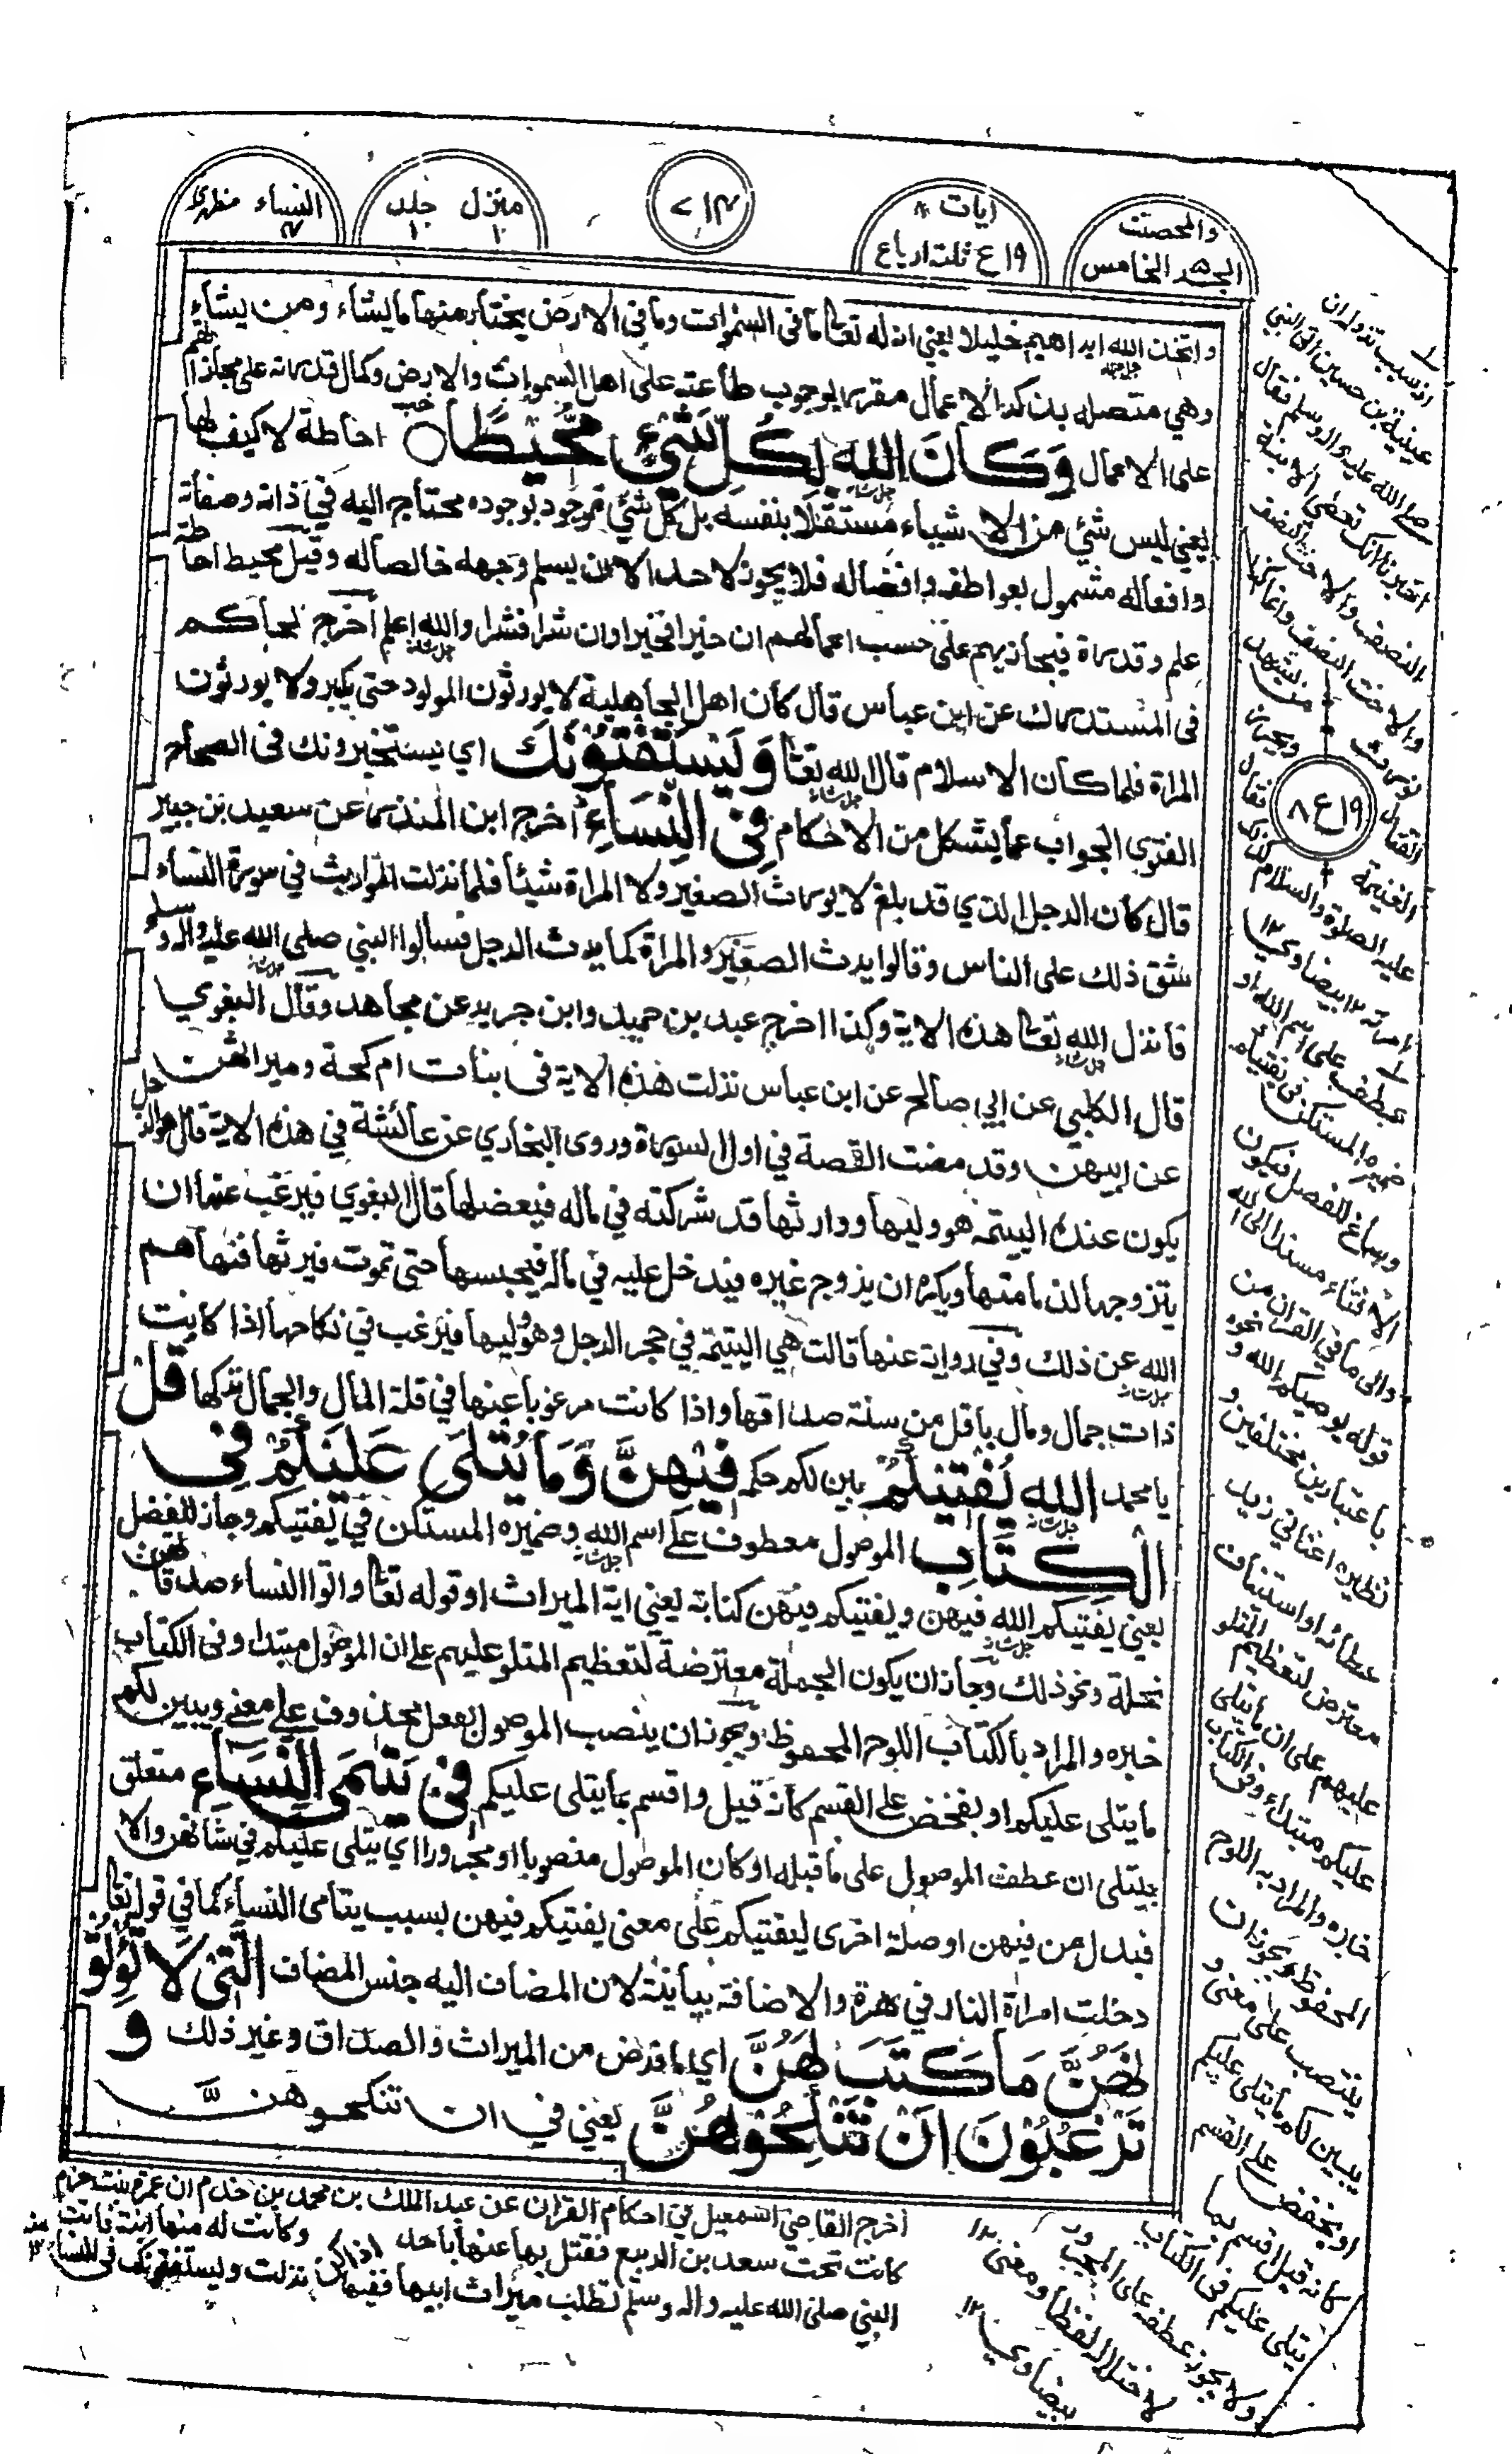 والمحصنت
الجزء الخامس
ايات ٨
١٩ ع ثلثة ارباع
منزل ١ جلد ١
النساء ٤ مظهري
واتخذ الله ابراهيم خليلا يعني ان له تعالى ما في السموات وما في الارض يختار منها ما يشاء ومن يشاء
وهي متصلة بذكر الاعمال مقررة لوجوب طاعته على اهل السموات والارض وكمال قدرته على مجازاتهم
على الاعمال وَكَانَ اللهُ بِكُلِّ شَيْءٍ مُّحِيْطًا احاطة لا كيف لها
يعني ليس شئ من الاشياء مستقلا بنفسه بل كل شئ موجود بوجوده محتاج اليه في ذاته وصفاته
وافعاله مشمول بعواطفه وافضاله فلا يجوز لاحد الا من يسلم وجهه خالصا له وقيل محيط احاطة
علم وقدرة فيجازيهم على حسب اعمالهم ان خيرا فخيرا وان شرا فشرا والله اعلم اخرج الحاكم
في المستدرك عن ابن عباس قال كان اهل الجاهلية لا يورثون المولود حتى يكبر ولا يورثون
المراة فلما كان الاسلام قال الله تعالى وَيَسْتَفْتُوْنَكَ اي يستخبرونك في الصحاح
الفتوى الجواب عما يشكل من الاحكام فِي النِّسَاءِ اخرج ابن المنذر عن سعيد بن جبير
قال كان الرجل الذي قد بلغ لا يورث الصغير ولا المراة شيئا فلما نزلت المواريث في سورة النساء
شق ذلك على الناس وقالوا يرث الصغير والمراة كما يرث الرجل فسالوا النبي صلى الله عليه واله وسلم
فانزل الله تعالى هذه الاية وكذا اخرج عبد بن حميد وابن جرير عن مجاهد وقال البغوي
قال الكلبي عن ابي صالح عن ابن عباس نزلت هذه الاية في بنات ام كحة وميراثهن
عن ابيهن وقد مضت القصة في اول السورة وروى البخاري عن عائشة في هذه الاية قال هو الرجل
يكون عنده اليتيمة هو وليها ووارثها قد شركته في ماله فيعضلها قال البغوي فيرغب عنها ان
يتزوجها لذمامتها ويكره ان يزوج غيره فيدخل عليه في ماله فيحبسها حتى تموت فيرثها فنهاهم
الله عن ذلك وفي رواية عنها قالت هي اليتيمة في حجر الرجل وهو وليها فيرغب في نكاحها اذا كانت
ذات جمال ومال باقل من سنة صداقها واذا كانت مرغوبا عنها في قلة المال والجمال تركها قُلِ
يا محمد اللهُ يُفْتِيْكُمْ يبين لكم حكمه فِيْهِنَّ وَمَا يُتْلٰى عَلَيْكُمْ فِي
الْكِتَابِ الموصول معطوف على اسم الله وضميره المستكن في يفتيكم وجاز للفصل
يعني يفتيكم الله فيهن ويفتيكم فيهن كتابه يعني اية الميراث او قوله تعالى واتوا النساء صدقاتهن
نحلة ونحو ذلك وجاز ان يكون الجملة معترضة لتعظيم المتلو عليهم على ان الموصول مبتدا وفي الكتاب
خبره والمراد بالكتاب اللوح المحفوظ ويجوز ان ينصب الموصول بفعل محذوف على معنى ويبين لكم
ما يتلى عليكم او يخفض على القسم كانه قيل واقسم بما يتلى عليكم فِيْ يَتٰمَى النِّسَاءِ متعلق
بيتلى ان عطف الموصول على ما قبله او كان الموصول منصوبا او مجرورا اي يتلى عليكم في شانهن والا
فبدل من فيهن او صلة اخرى ليفتيكم على معنى يفتيكم فيهن بسبب يتامى النساء كما في قوله تعالى
دخلت امراة النار في هرة والاضافة بيانية لان المضاف اليه جنس المضاف الّٰتِيْ لَا تُؤْتُوْ
نَهُنَّ مَا كُتِبَ لَهُنَّ اي ما فرض من الميراث والصداق وغير ذلك وَ
تَرْغَبُوْنَ اَنْ تَنْكِحُوْهُنَّ يعني في ان تنكحوهن
اخرج القاضي اسمعيل في احكام القران عن عبد الملك بن محمد بن حزم ان عمرة بنت حزام
كانت تحت سعد بن الربيع فقتل بها عنها باحد وكانت له منها ابنة فاتت
النبي صلى الله عليه واله وسلم تطلب ميراث ابيها ففيها نزلت ويستفتونك في النساء
اذ سبب نزوله ان
عيينة بن حصين اتى النبي
صلى الله عليه واله وسلم فقال
اخبرنا انك تعطى الابنة
النصف والاخت النصف وانما كنا
نورث من يشهد
القتال ويحوز
الغنيمة فقال
عليه الصلوة والسلام كذلك
امرت ١٢ بيضاوي ١٢
١٩ ع ٨
عطف على اسم الله او
ضميره المستكن في يفتيكم
وساغ للفصل فيكون
الافتاء مسندا الى الله
والى ما في القران من
قوله يوصيكم الله ونحوه
باعتبارين مختلفين و
نظيره اغناني زيد
عطائه او استيناف
معترض لتعظيم المتلو
عليهم على ان ما يتلى
عليكم مبتداء وفي الكتاب
خبره والمراد به اللوح
المحفوظ ويجوز ان
ينتصب على معنى و
يبين لكم ما يتلى عليكم
او يخفض على القسم
كانه قيل اقسم بما
يتلى عليكم في الكتاب
ولا يجوز عطفه على المجرور
لاختلاله لفظا ومعنى ١٢
بيضاوي ١٢